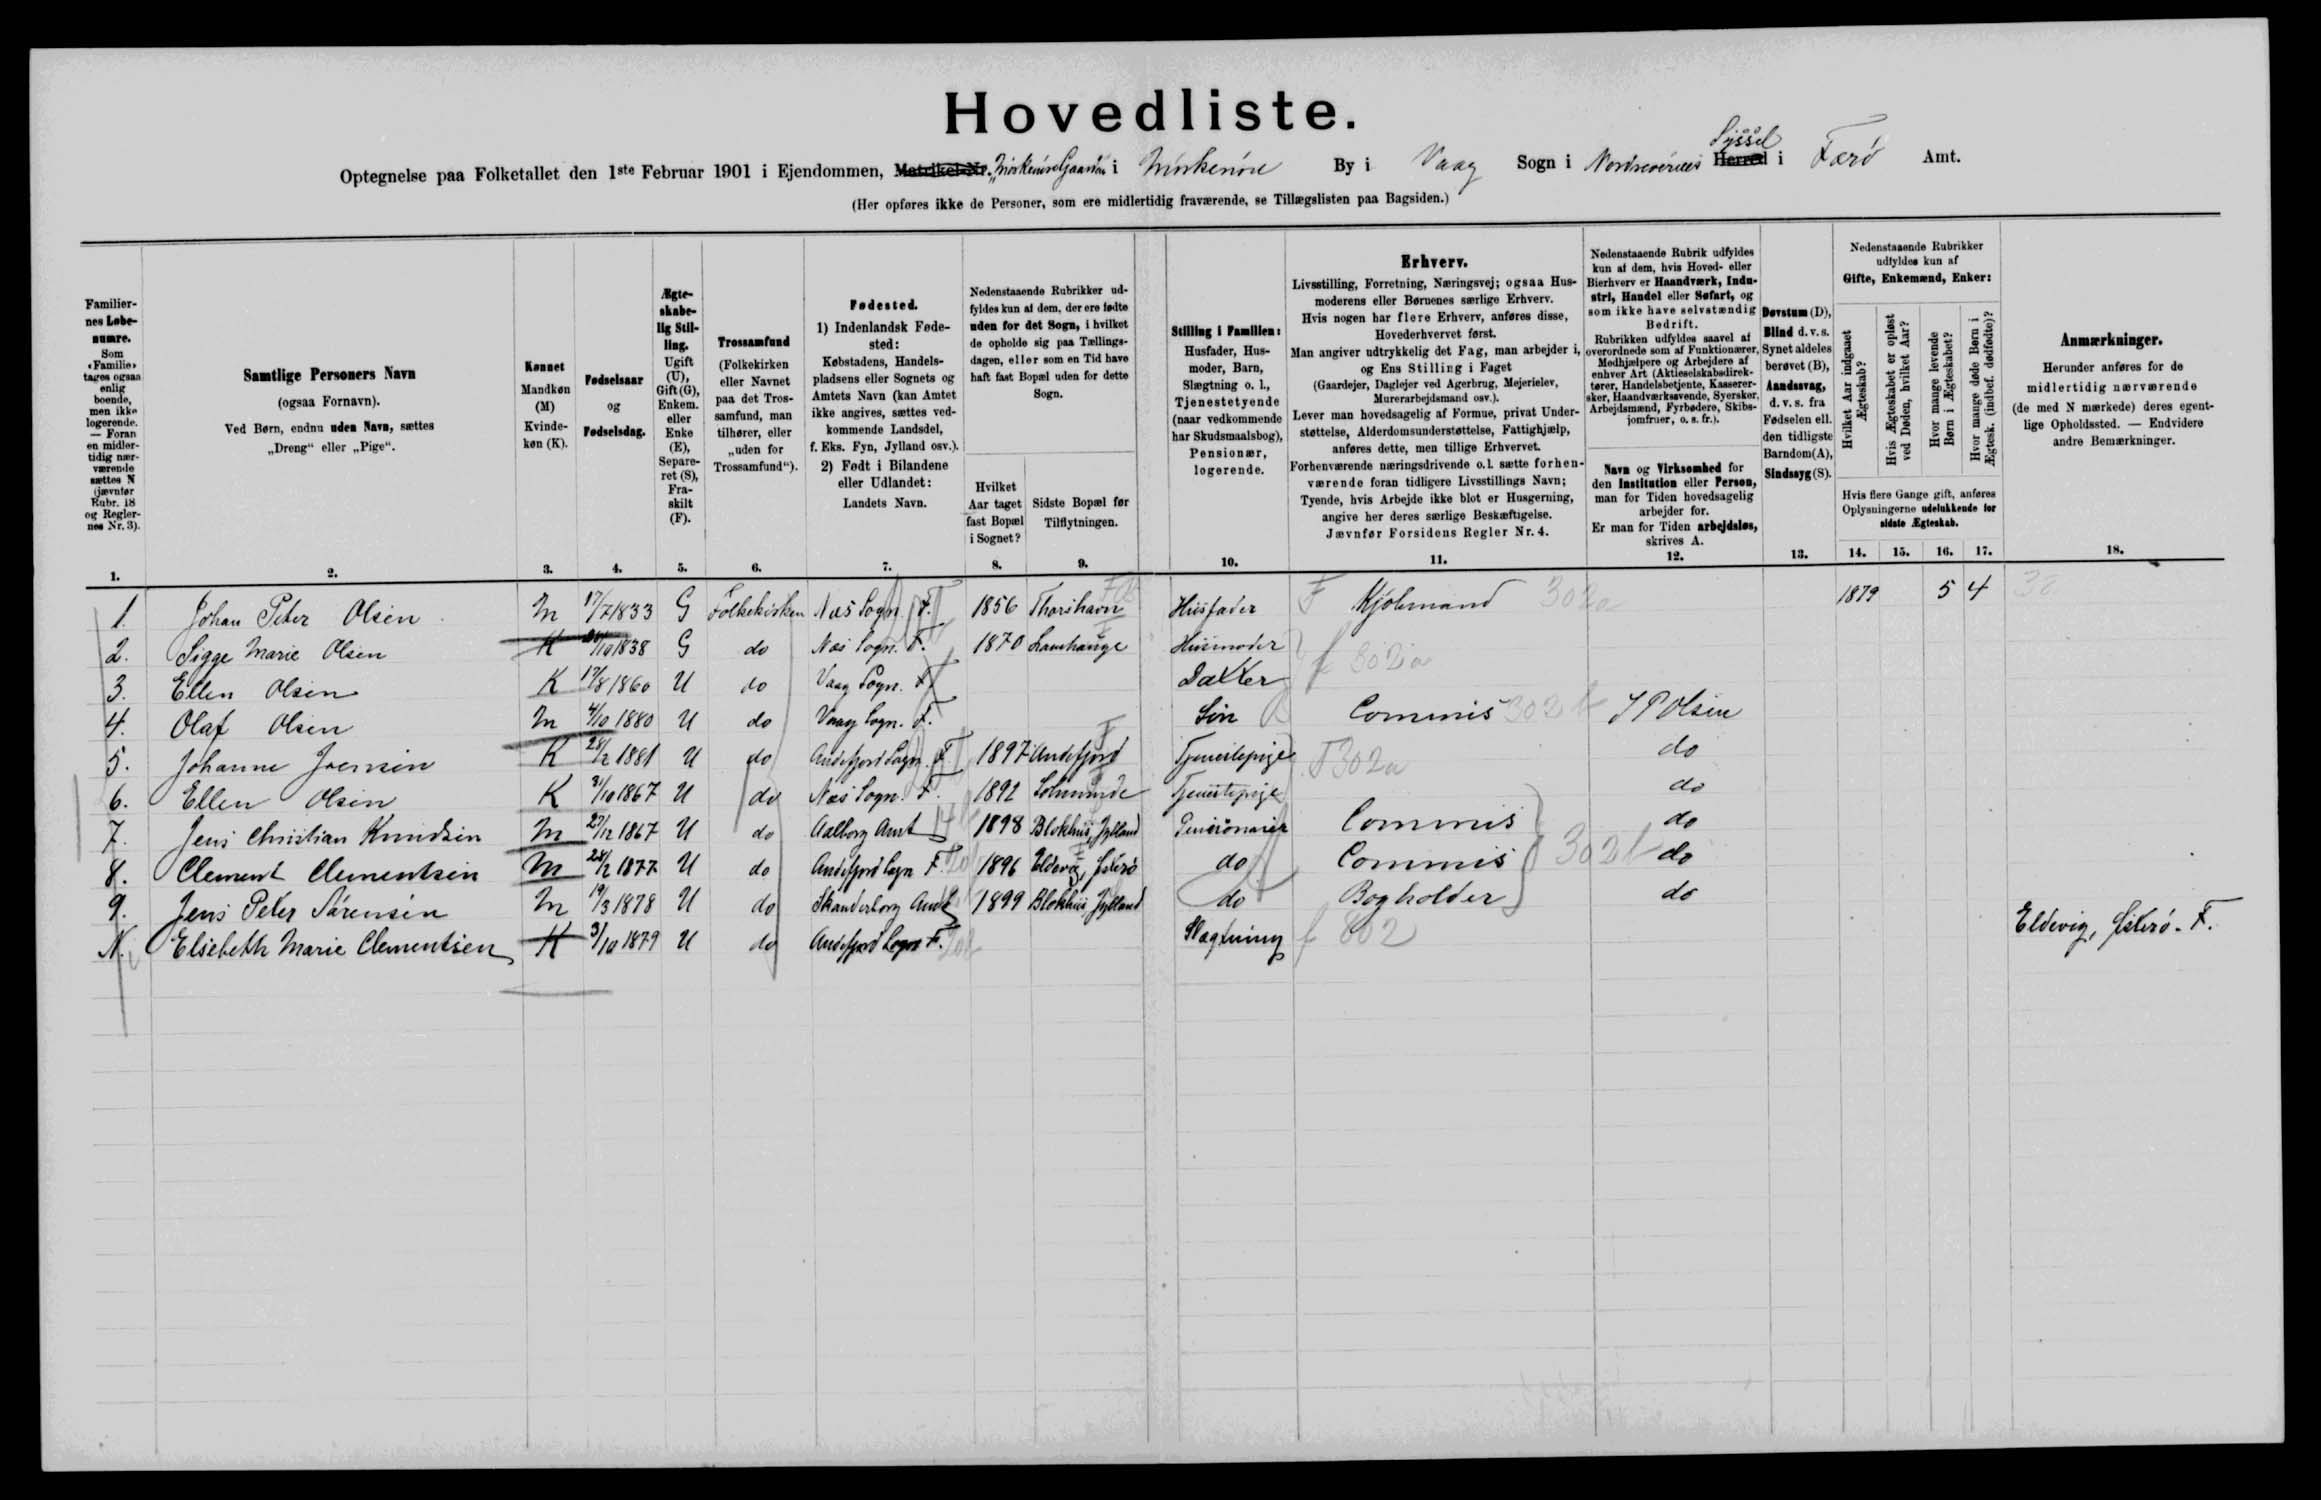 Hovedliste.
Syssel
Optegnelse paa Folketallet den 1ste Februar 1901 i Ejendommen, Matrikel-Nr. i By i Vaag Sogn i Herred i Færø Amt.
(Her opføres ikke de Personer, som ere midlertidig fraværende, se Tillægslisten paa Bagsiden.)
Familiernes Løbenumre.
Som «Familie» tages ogsaa enlig boende, men ikke logerende. — Foran en midlertidig nærværende sættes N (jævnfør Rubr. 18 og Reglernes Nr. 3).
Samtlige Personers Navn
(ogsaa Fornavn).
Ved Børn, endnu uden Navn, sættes
„Dreng“ eller „Pige“.
Kønnet
Mandkøn (M)
Kvindekøn (K).
Fødselsaar
og
Fødselsdag.
Ægteskabelig Stilling.
Ugift (U), Gift (G), Enkem. eller Enke (E), Separeret (S), Fraskilt (F).
Trossamfund
(Folkekirken eller Navnet paa det Trossamfund, man tilhører, eller „uden for Trossamfund“).
Fødested.
1) Indenlandsk Fødested:
Købstadens, Handelspladsens eller Sognets og Amtets Navn (kan Amtet ikke angives, sættes vedkommende Landsdel, f. Eks. Fyn, Jylland osv.).
2) Født i Bilandene eller Udlandet:
Landets Navn.
Nedenstaaende Rubrikker udfyldes kun af dem, der ere fødte uden for det Sogn, i hvilket de opholde sig paa Tællingsdagen, eller som en Tid have haft fast Bopæl uden for dette Sogn.
Hvilket Aar taget fast Bopæl i Sognet?
Sidste Bopæl før Tilflytningen.
Stilling i Familien:
Husfader, Husmoder, Barn, Slægtning o. l., Tjenestetyende (naar vedkommende har Skudsmaalsbog), Pensionær, logerende.
Erhverv.
Livsstilling, Forretning, Næringsvej; ogsaa Husmoderens eller Børnenes særlige Erhverv.
Hvis nogen har flere Erhverv, anføres disse, Hovederhvervet først.
Man angiver udtrykkelig det Fag, man arbejder i, og Ens Stilling i Faget
(Gaardejer, Daglejer ved Agerbrug, Mejerielev, Murerarbejdsmand osv.).
Lever man hovedsagelig af Formue, privat Understøttelse, Alderdomsunderstøttelse, Fattighjælp, anføres dette, men tillige Erhvervet.
Forhenværende næringsdrivende o. l. sætte forhenværende foran tidligere Livsstillings Navn;
Tyende, hvis Arbejde ikke blot er Husgerning, angive her deres særlige Beskæftigelse.
Jævnfør Forsidens Regler Nr. 4.
Nedenstaaende Rubrik udfyldes kun af dem, hvis Hoved- eller Bierhverv er Haandværk, Industri, Handel eller Søfart, og som ikke have selvstændig Bedrift.
Rubrikken udfyldes saavel af overordnede som af Funktionærer, Medhjælpere og Arbejdere af enhver Art (Aktieselskabsdirektører, Handelsbetjente, Kasserersker, Haandværkssvende, Syersker, Arbejdsmænd, Fyrbødere, Skibsjomfruer, o. s. fr.).
Navn og Virksomhed for den Institution eller Person, man for Tiden hovedsagelig arbejder for.
Er man for Tiden arbejdsløs, skrives A.
Døvstum (D), Blind d. v. s. Synet aldeles berøvet (B), Aandssvag, d. v. s. fra Fødselen ell. den tidligste Barndom (A), Sindssyg (S).
Nedenstaaende Rubrikker udfyldes kun af
Gifte, Enkemænd, Enker:
Hvilket Aar indgaaet Ægteskab?
Hvis Ægteskabet er opløst ved Døden, hvilket Aar?
Hvor mange levende Børn i Ægteskabet?
Hvor mange døde Børn i Ægtesk. (indbef. dødfødte)?
Hvis flere Gange gift, anføres Oplysningerne udelukkende for sidste Ægteskab.
Anmærkninger.
Herunder anføres for de midlertidig nærværende (de med N mærkede) deres egentlige Opholdssted. — Endvidere andre Bemærkninger.
1. 2. 3. 4. 5. 6. 7. 8. 9. 10. 11. 12. 13. 14. 15. 16. 17. 18.
1. Johan Peter Olsen M 17/7 1833 G Folkekirken Næs Sogn. F. 1856 Thorshavn Husfader F Kjøbmand 302a 1879 5 4
2. Sigge Marie Olsen K /10 1838 G do Næs Sogn. F. 1870 Lamhauge Husmoder f 302a
3. Ellen Olsen K 17/8 1860 U do Vaag Sogn. F Datter
4. Olaf Olsen M 4/10 1880 U do Vaag Sogn. F. Søn Commis 302b J P Olsen
5. Johanne Joensen K 28/2 1881 U do Andefjord Sogn. F 1897 Andefjord Tjenestepige T302a do
6. Ellen Olsen K 31/10 1867 U do Næs Sogn. F. 1892 Tjenestepige do
7. Jens Christian Knudsen M 27/12 1867 U do Aalborg Amt 1898 Blokhus, Jylland Pensionær Commis do
8. Clement Clementsen M 28/2 1877 U do Andefjord Sogn F. 1896 Eldevig, Østerø do Commis 302b do
9. Jens Peter Sørensen M 19/3 1878 U do Skanderborg Amt 1899 Blokhus Jylland do Bogholder do
N. Elsebeth Marie Clementsen K 3/10 1879 U do Andefjord Sogn F. Slægtning f 302 Eldevig, Østerø. F.